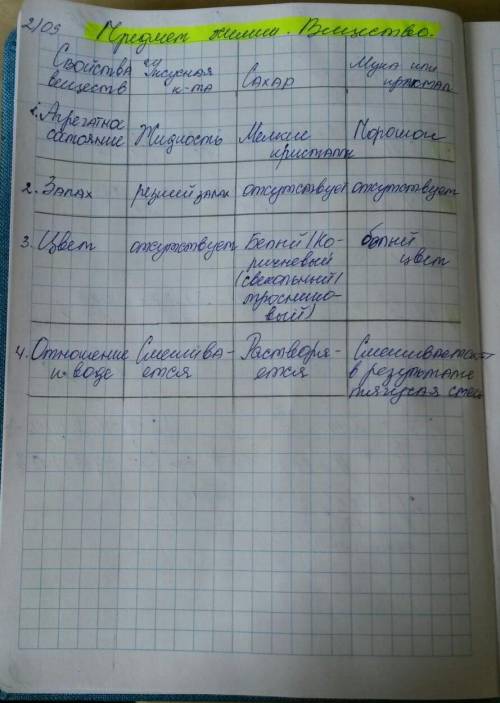 2/09 Предмет химии. Вещество.
Свойства веществ Уксусная к-та Сахар Мука или крахмал
1. Агрегатное состояние Жидкость Мелкие кристаллы Порошок
2. Запах резкий запах отсутствует отсутствует
3. Цвет отсутствует Белый/Коричневый (свекольный/тростниковый) белый цвет
4. Отношение к воде Смешивается Растворяется Смешивается в результате тягучая смесь